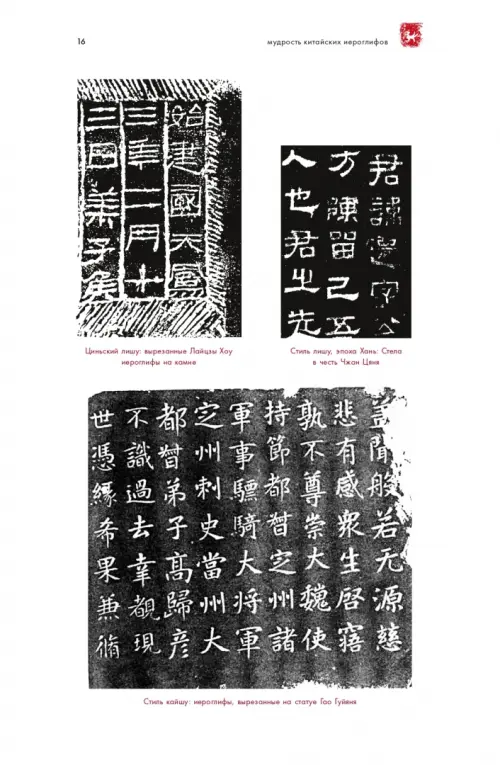 16
мудрость китайских иероглифов
始建國天鳳
三年二月十
三日萊子侯
Циньский лишу: вырезанные Лайцзы Хоу
иероглифы на камне
君諱遷字公
方陳留己吾
人也君之先
Стиль лишу, эпоха Хань: Стела
в честь Чжан Цяня
盖聞般若无源慈
悲有感衆生啓寤
孰不尊崇大魏使
持節都督定州諸
軍事驃騎大将軍
定州刺史當州大
都督弟子高歸彦
不識過去幸覩現
世憑緣希果兼脩
Стиль кайшу: иероглифы, вырезанные на статуе Гао Гуйяня